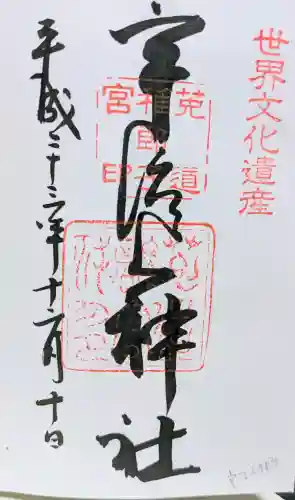 世界文化遺産
菟道
稚郎子
宮印
宇治上神社
平成二十三年十二月十日